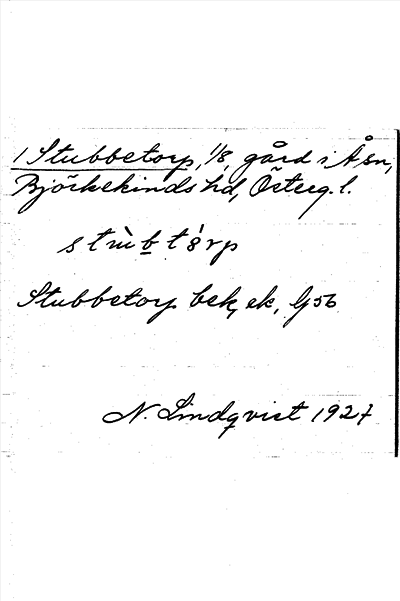 1 Stubbetorp, 1/8, gård i Å sn,
Björkekinds hd, Österg. l.
stùb tórp
Stubbetorp bek, ek, Gj 56
N. Lindqvist 1927